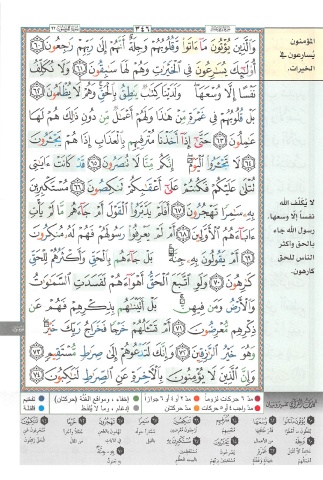 ٣٤٦
وَالَّذِينَ يُؤْتُونَ مَا ءَاتَوا وَّقُلُوبُهُمْ وَجِلَةٌ أَنَّهُمْ إِلَىٰ رَبِّهِمْ رَٰجِعُونَ ٦٠
أُولَٰئِكَ يُسَٰرِعُونَ فِي الْخَيْرَٰتِ وَهُمْ لَهَا سَٰبِقُونَ ٦١ وَلَا نُكَلِّفُ
نَفْسًا إِلَّا وُسْعَهَا وَلَدَيْنَا كِتَٰبٌ يَنطِقُ بِالْحَقِّ وَهُمْ لَا يُظْلَمُونَ ٦٢
بَلْ قُلُوبُهُمْ فِي غَمْرَةٍ مِّنْ هَٰذَا وَلَهُمْ أَعْمَٰلٌ مِّن دُونِ ذَٰلِكَ هُمْ لَهَا
عَٰمِلُونَ ٦٣ حَتَّىٰ إِذَا أَخَذْنَا مُتْرَفِيهِم بِالْعَذَابِ إِذَا هُمْ يَجْـَٔرُونَ
٦٤ لَا تَجْـَٔرُوا الْيَوْمَ إِنَّكُم مِّنَّا لَا تُنصَرُونَ ٦٥ قَدْ كَانَتْ ءَايَٰتِي
تُتْلَىٰ عَلَيْكُمْ فَكُنتُمْ عَلَىٰ أَعْقَٰبِكُمْ تَنكِصُونَ ٦٦ مُسْتَكْبِرِينَ
بِهِ سَٰمِرًا تَهْجُرُونَ ٦٧ أَفَلَمْ يَدَّبَّرُوا الْقَوْلَ أَمْ جَاءَهُم مَّا لَمْ يَأْتِ
ءَابَاءَهُمُ الْأَوَّلِينَ ٦٨ أَمْ لَمْ يَعْرِفُوا رَسُولَهُمْ فَهُمْ لَهُ مُنكِرُونَ
٦٩ أَمْ يَقُولُونَ بِهِ جِنَّةٌ بَلْ جَاءَهُم بِالْحَقِّ وَأَكْثَرُهُمْ لِلْحَقِّ
كَٰرِهُونَ ٧٠ وَلَوِ اتَّبَعَ الْحَقُّ أَهْوَاءَهُمْ لَفَسَدَتِ السَّمَٰوَٰتُ
وَالْأَرْضُ وَمَن فِيهِنَّ بَلْ أَتَيْنَٰهُم بِذِكْرِهِمْ فَهُمْ عَن
ذِكْرِهِم مُّعْرِضُونَ ٧١ أَمْ تَسْـَٔلُهُمْ خَرْجًا فَخَرَاجُ رَبِّكَ خَيْرٌ
وَهُوَ خَيْرُ الرَّٰزِقِينَ ٧٢ وَإِنَّكَ لَتَدْعُوهُمْ إِلَىٰ صِرَٰطٍ مُّسْتَقِيمٍ ٧٣
وَإِنَّ الَّذِينَ لَا يُؤْمِنُونَ بِالْءَاخِرَةِ عَنِ الصِّرَٰطِ لَنَٰكِبُونَ ٧٤
المؤمنون
يُسارعون في
الخيرات.
لا يُكلّف الله
نفساً إلا وسعها،
رسول الله جاء
بالحق وأكثر
الناس للحق
كارهون.
مدّ ٦ حركات لزوماً مدّ ٢ أو ٤ أو ٦ جوازاً إخفاء، ومواقع الغنّة (حركتان) تفخيم
مدّ واجب ٤ أو ٥ حركات مدّ حركتان إدغام، وما لا يُلفظ قلقلة